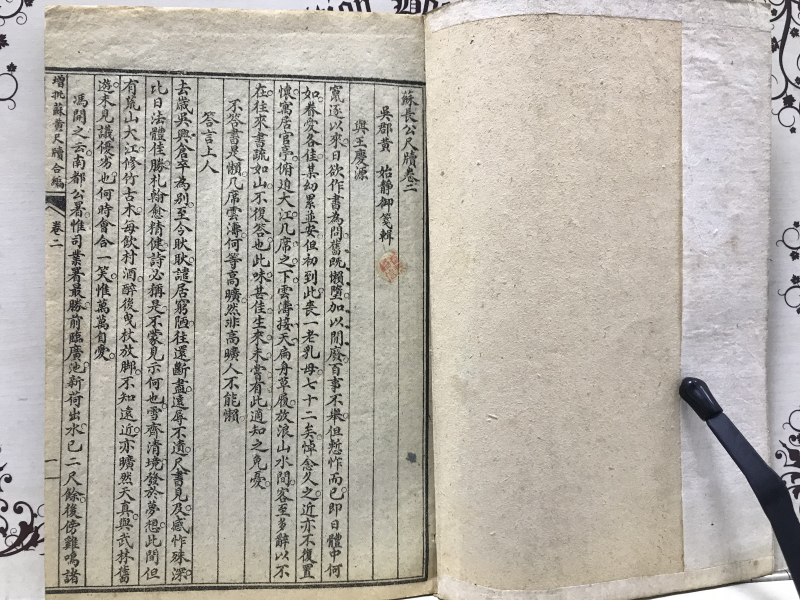 蘇長公尺牘卷二
吳郡黃始靜御箋輯
與王慶源
竄逐以來日欲作書為問舊既懶墮加以閒廢百事不舉但慙怍而已即日體中何
如眷愛各佳某幼累並安但初到此喪一老乳母七十二矣悼念久之近亦不復置
懷寓居官亭俯迫大江几席之下雲濤接天扁舟草履放浪山水間客至多辭以不
在往來書疏如山不復答也此味甚佳生來未嘗有此適知之免憂
不答書是懶几席雲濤何等高曠然非高曠人不能懶
答言上人
去歲吳興倉卒為別至今耿耿譴居窮陋往還斷盡遠辱不遺尺書見及感怍殊深
比日法體佳勝札翰愈精健詩必稱是不蒙見示何也雪齋清境發於夢想此間但
有荒山大江修竹古木每飲村酒醉後曳杖放脚不知遠近亦曠然天真與武林舊
遊未見議優劣也何時會合一笑惟萬萬自愛
馮開之云南都公署惟司業署最勝前臨廣池新荷出水已二尺餘後傍雞鳴諸
增批蘇黃尺牘合編
卷二
一